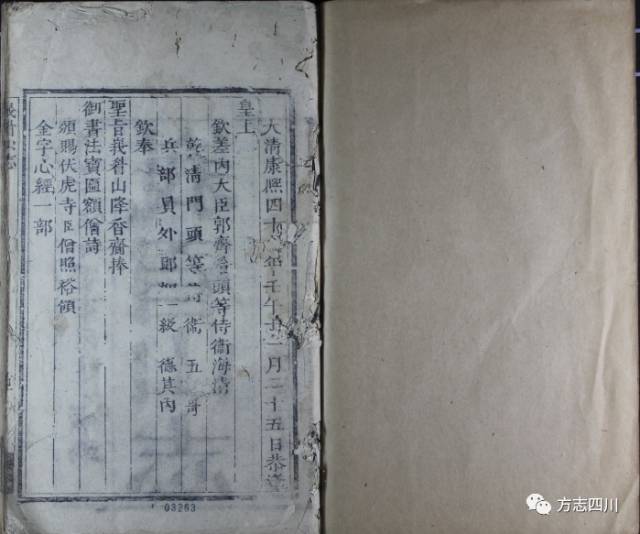 大清康熙四十年壬午十一月二十五日恭逢
皇上
欽差內大臣郭齊哈頭等侍衛海清
乾清門頭等侍衛五哥
兵部員外郎加一級德其內
欽奉
聖旨峩眉山降香齋捧
御書法寶匾額詹詩
頒賜伏虎寺臣僧照裕領
金字心經一部
峩眉山志
03263
方志四川